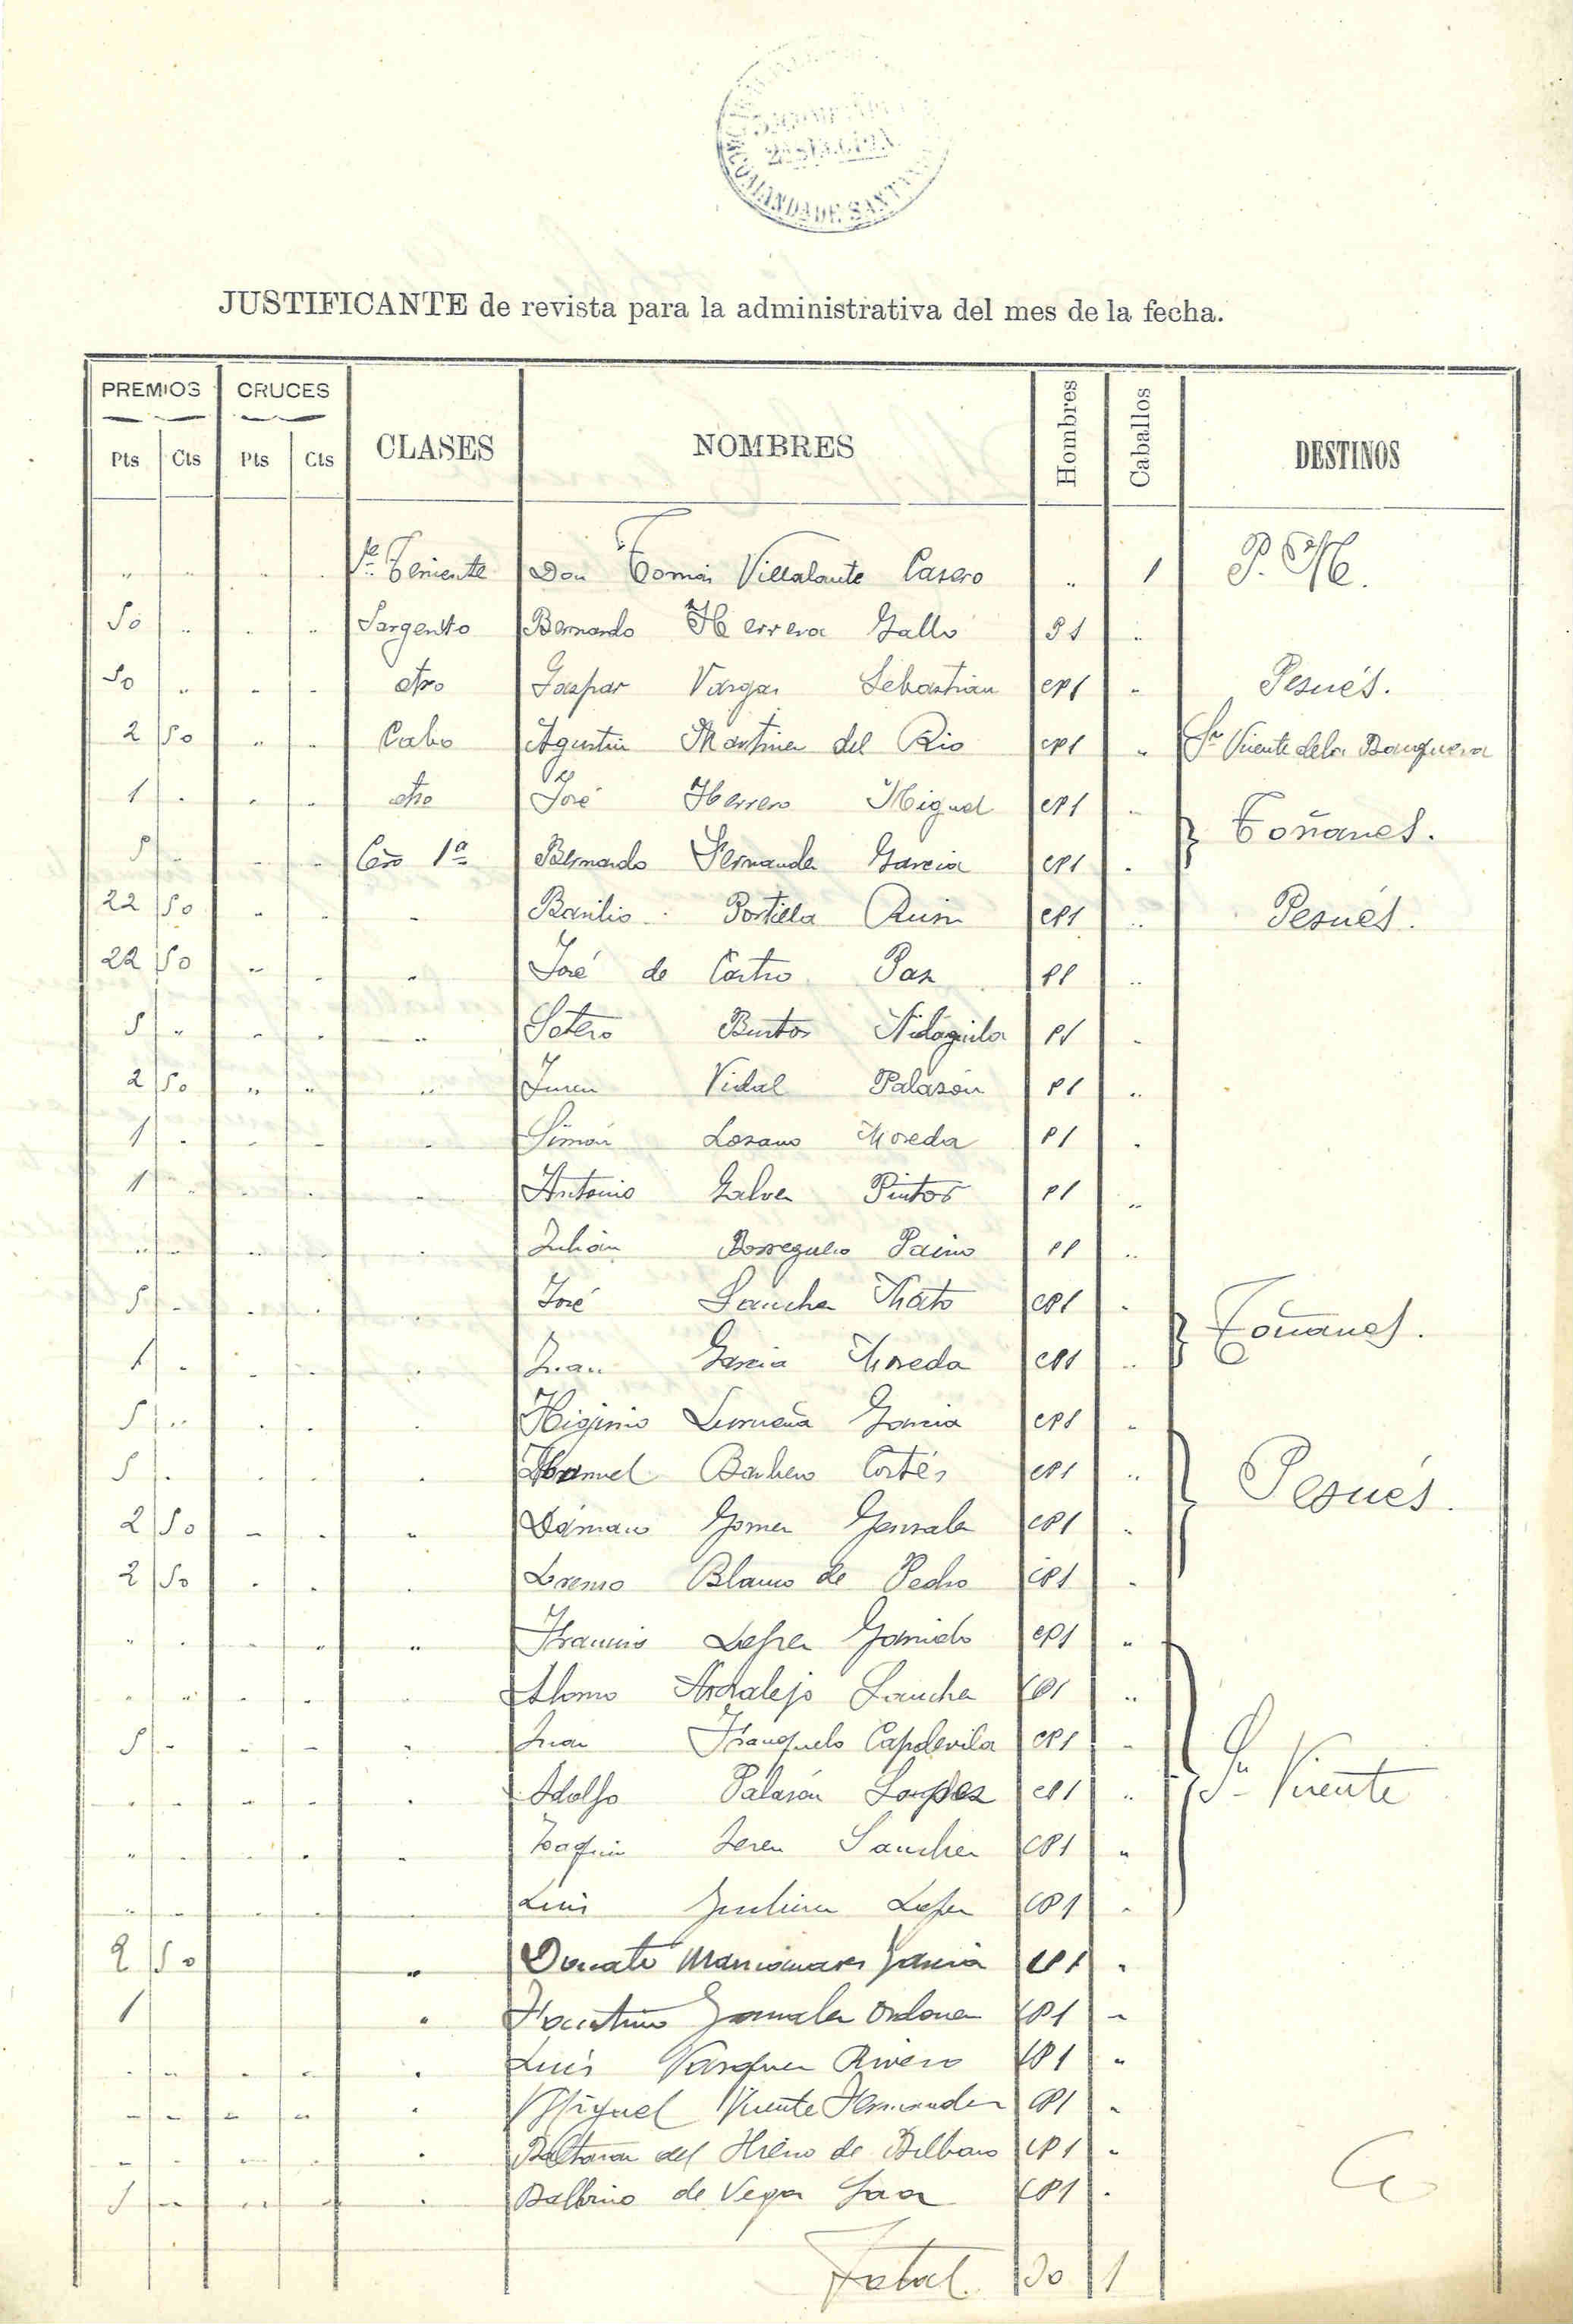 COMANDA DE SANTAN
JUSTIFICANTE de revista para la administrativa del mes de la fecha.
PREMIOS CRUCES CLASES NOMBRES Hombres Caballos DESTINOS
Pts Cts Pts Cts
" " " " 1er Teniente Don Tomás Villalante Casero " 1 P. M.
50 " " " Sargento Bernardo Herrera Gallo P1 "
50 " " " otro Gaspar Vargas Sebastian CP1 " Pesués.
2 50 " " Cabo Agustin Martinez del Rio CP1 " Sn Vicente de la Barquera
1 " " " otro José Herrero Miguel CP1 " } Toñanes.
5 " " " 1ª Bernardo Fernandez Garcia CP1 "
22 50 " " " Basilio Portilla Ruiz CP1 " Pesués.
22 50 " " " José de Castro Paz P1 "
5 " " " " Sotero Bustos P1 "
2 50 " " " Juan Vidal Palazón P1 "
1 " " " " Simón Lozano Moreda P1 "
1 " " " " Antonio Galvez Pintos P1 "
" " " " " Julián Borreguero Paino P1 "
5 " " " " José Sanchez Mato CP1 " } Toñanes.
1 " " " " Juan Garcia Moreda CP1 "
5 " " " " Higinio Lumeña Garcia CP1 "
5 " " " " Manuel Barbero Cortés CP1 " } Pesués.
2 50 " " " Dámaso Gomez Gonzalez CP1 "
2 50 " " " Blanco de Pedro CP1 "
" " " " " Lopez Garrido CP1 "
" " " " " Alonso Andralejo Sanchez CP1 "
5 " " " " Juan Franquelo Capdevila CP1 " } Sn Vicente
" " " " " Adolfo Palazón Lopez CP1 "
" " " " " Joaquin Jerez Sanchez CP1 "
" " " " " Luis Lopez CP1 "
2 50 " Donato Garcia CP1 "
1 " Faustino Gonzalez Ordonez CP1 "
" " " " " Luis Vazquez Rivero CP1 "
" " " " " Miguel Vicente Fernandez CP1 "
" " " " " Baltasar del de Bilbao CP1 "
5 " " " " Balbino de Vega Saez CP1 "
Total. 30 1